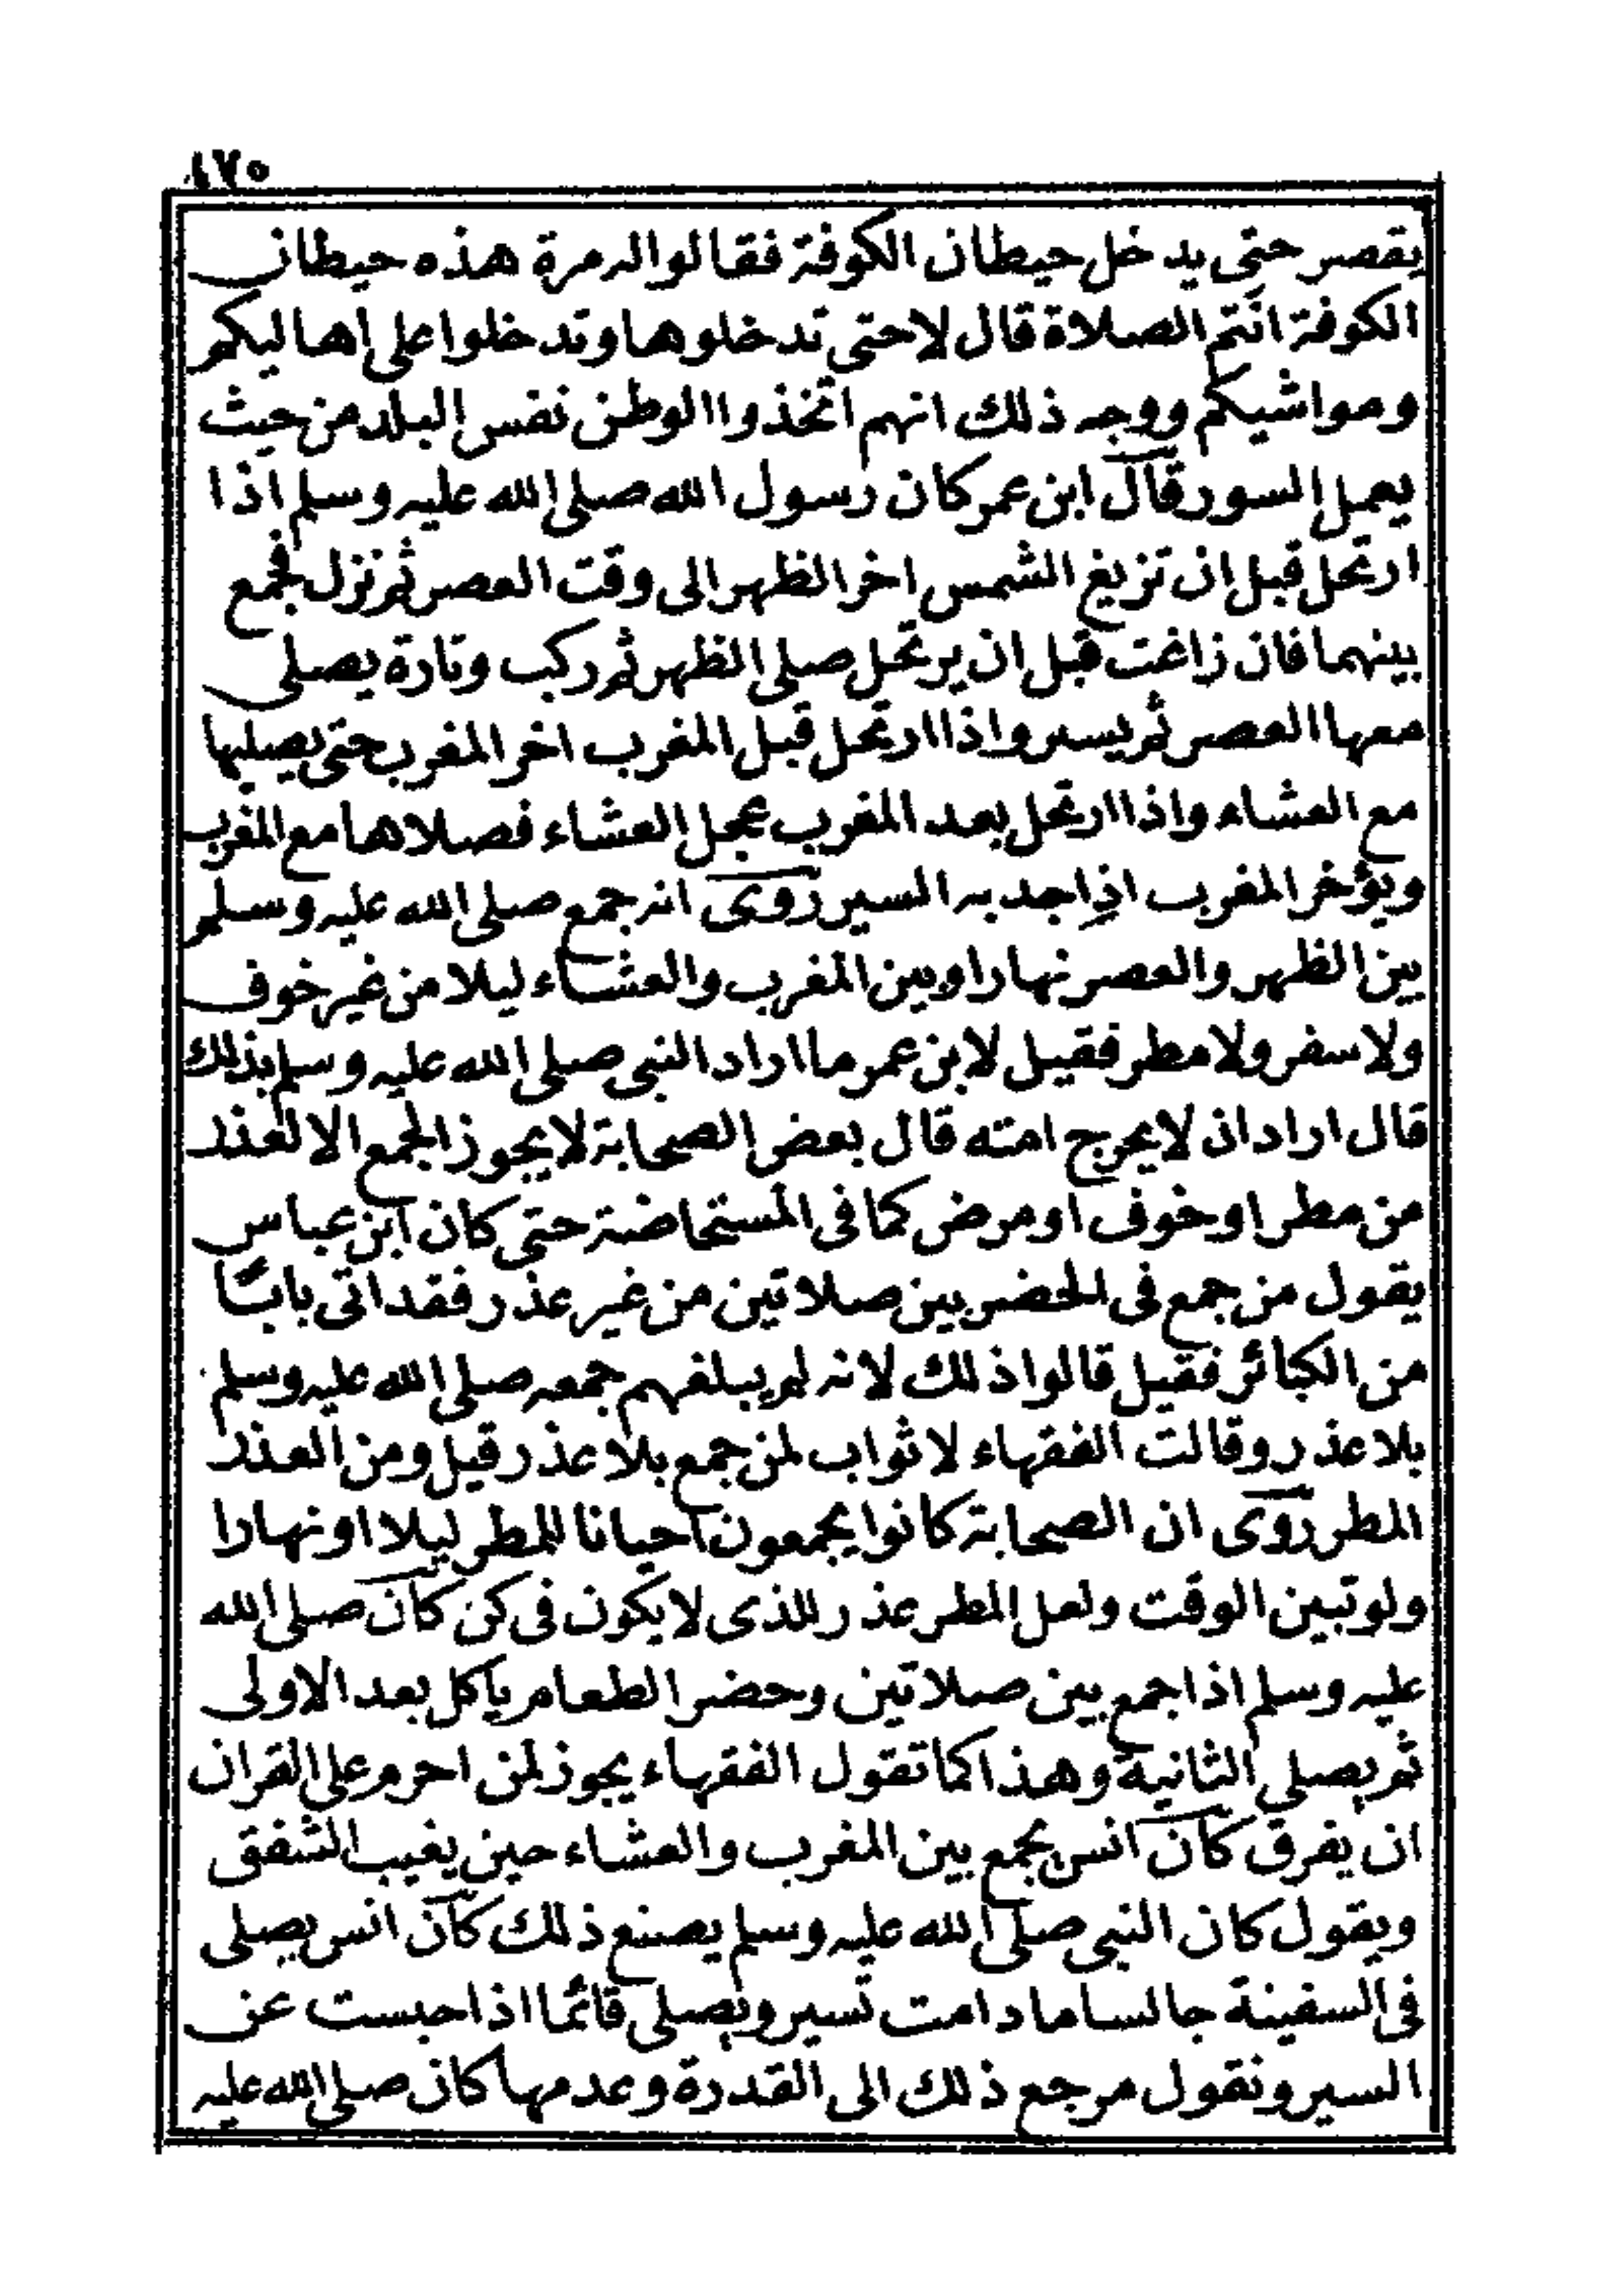 ١٧٥
يقصر حتى يدخل حيطان الكوفة فقالوا له مرة هذه حيطان
الكوفة انتم الصلاة قال لا حتى تدخلوها وتدخلوا على اهاليكم
ومواشيكم ووجه ذلك انهم اتخذوا الوطن نفس البلد من حيث
يعمل السور قال ابن عمر كان رسول الله صلى الله عليه وسلم اذا
ارتحل قبل ان تزيغ الشمس اخر الظهر الى وقت العصر ثم نزل فجمع
بينهما فان زاغت قبل ان يرتحل صلى الظهر ثم ركب وتارة يصلى
معها العصر ثم يسير واذا ارتحل قبل المغرب اخر المغرب حتى يصليها
مع العشاء واذا ارتحل بعد المغرب عجل العشاء فصلاها مع المغرب
ويؤخر المغرب اذا جد به السير روى انه جمع صلى الله عليه وسلم
بين الظهر والعصر نهارا وبين المغرب والعشاء ليلا من غير خوف
ولا سفر ولا مطر فقيل لابن عمر ما اراد النبى صلى الله عليه وسلم بذلك
قال اراد ان لا يحرج امته قال بعض الصحابة لا يجوز الجمع الا لعذر
من مطر او خوف او مرض كما فى المستحاضة حتى كان ابن عباس
يقول من جمع فى الحضر بين صلاتين من غير عذر فقد اتى بابًا
من الكبائر فقيل قالوا ذلك لانه لم يبلغهم جمعه صلى الله عليه وسلم
بلا عذر وقالت الفقهاء لا ثواب لمن جمع بلا عذر قيل ومن العذر
المطر روى ان الصحابة كانوا يجمعون احيانا للمطر ليلا او نهارا
ولو تبين الوقت ولعل المطر عذر للذى لا يكون فى كن كان صلى الله
عليه وسلم اذا جمع بين صلاتين وحضر الطعام ياكل بعد الاولى
ثم يصلى الثانية وهذا كما تقول الفقهاء يجوز لمن احرم على القران
ان يفرق كان انس يجمع بين المغرب والعشاء حين يغيب الشفق
ويقول كان النبى صلى الله عليه وسلم يصنع ذلك كان انس يصلى
فى السفينة جالسا ما دامت تسير ويصلى قائما اذا حبست عن
السير ونقول مرجع ذلك الى القدرة وعدمها كان صلى الله عليه